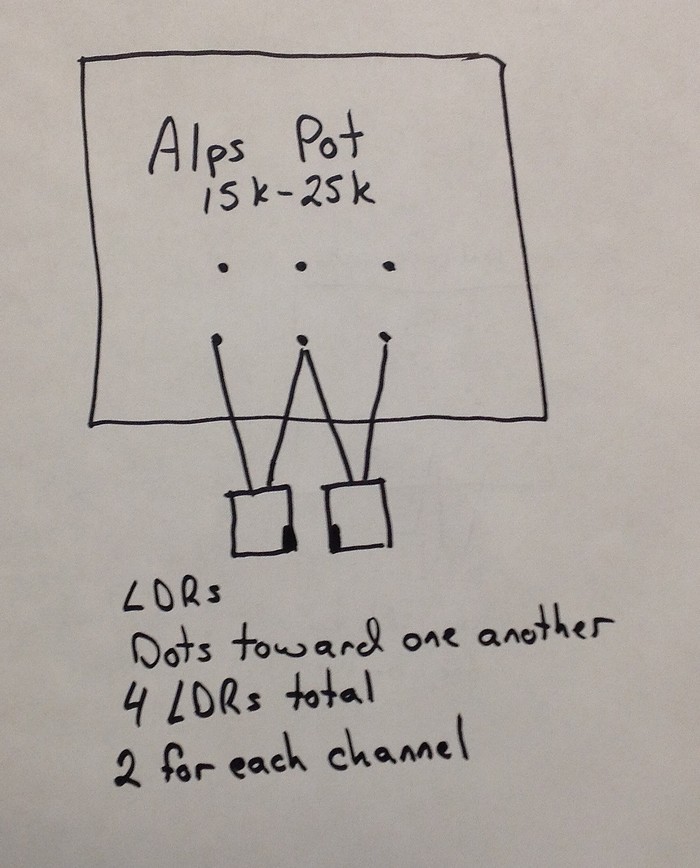 Alps Pot
15k-25k
LDRs
Dots toward one another
4 LDRs total
2 for each channel